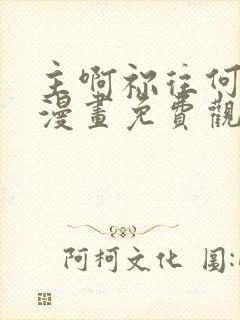 主啊祢往何
漫畫免費觀
阿柯文化 圖: